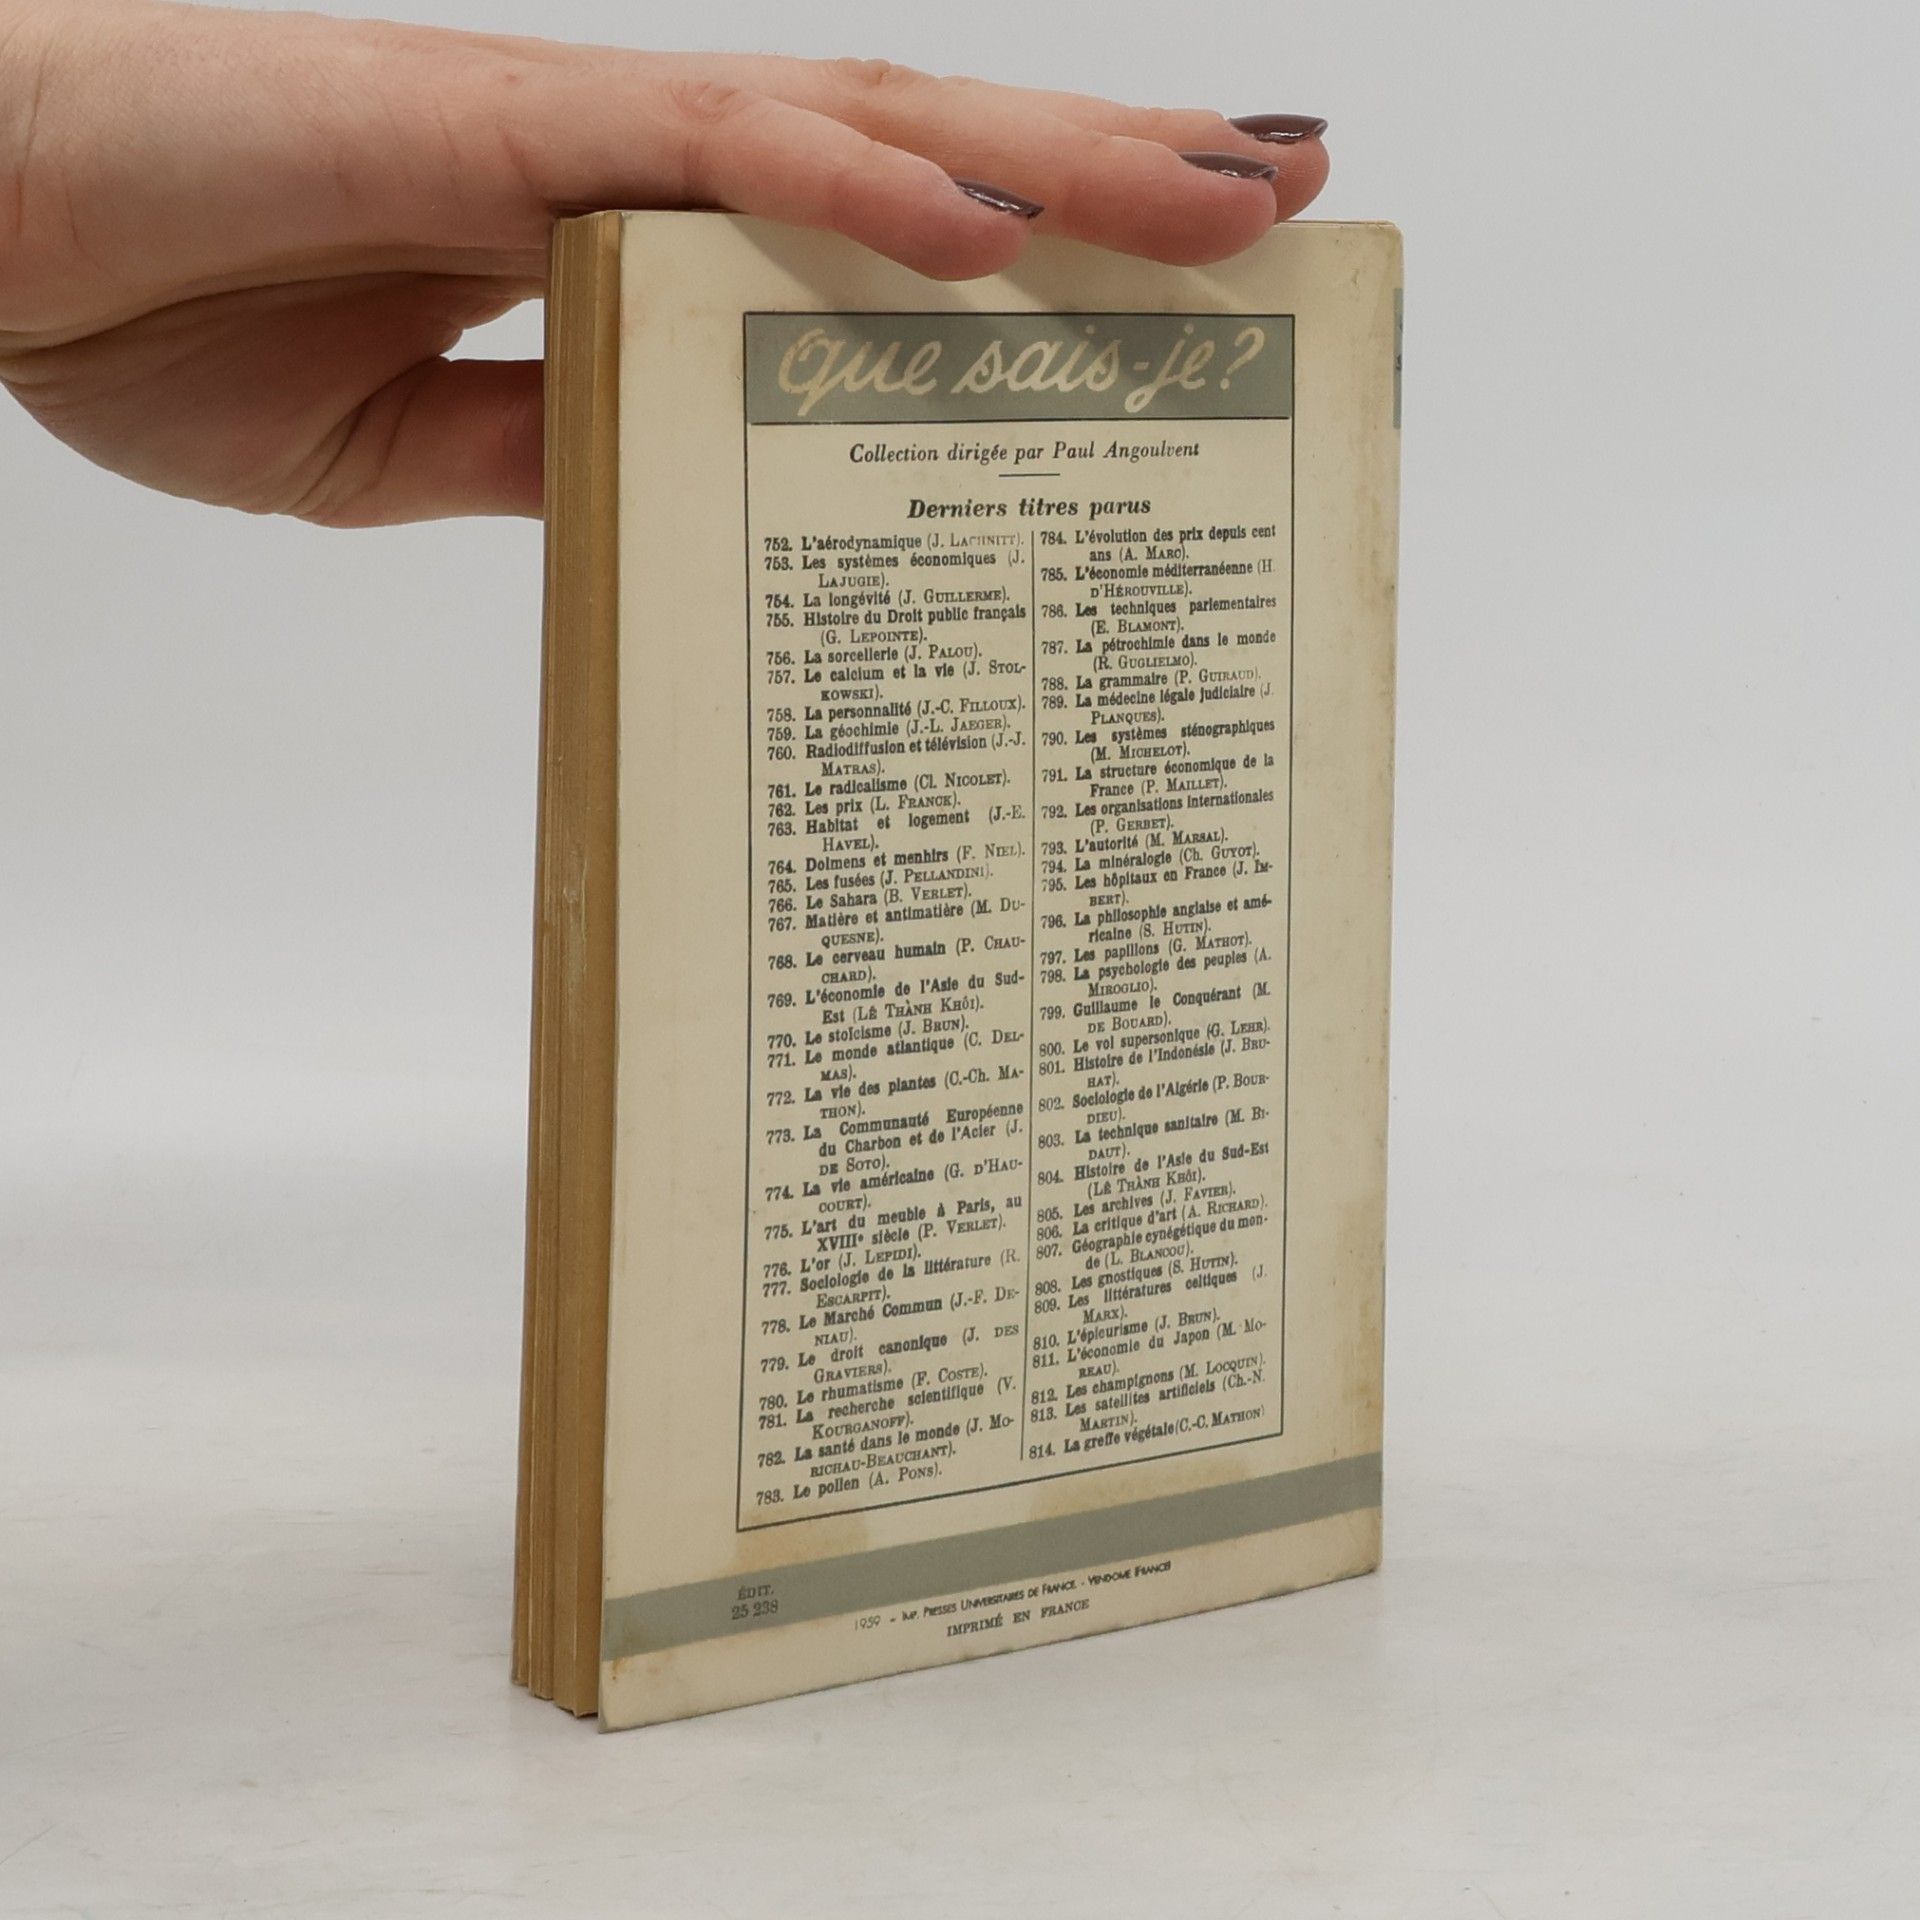 que sais-je?
Collection dirigée par Paul Angoulvent
Derniers titres parus
752. L'aérodynamique (J. LACHNITT).
753. Les systèmes économiques (J.
LAJUGIE).
754. La longévité (J. GUILLERME).
755. Histoire du Droit public français
(G. LEPOINTE).
756. La sorcellerie (J. PALOU).
757. Le calcium et la vie (J. STOL-
KOWSKI).
758. La personnalité (J.-C. FILLOUX).
759. La géochimie (J.-L. JAEGER).
760. Radiodiffusion et télévision (J.-J.
MATRAS).
761. Le radicalisme (Cl. NICOLET).
762. Les prix (L. FRANCK).
763. Habitat et logement (J.-E.
HAVEL).
764. Dolmens et menhirs (F. NIEL).
765. Les fusées (J. PELLANDINI).
766. Le Sahara (B. VERLET).
767. Matière et antimatière (M. DU-
QUESNE).
768. Le cerveau humain (P. CHAU-
CHARD).
769. L'économie de l'Asie du Sud-
Est (LÊ THÀNH KHÔI).
770. Le stoïcisme (J. BRUN).
771. Le monde atlantique (C. DEL-
MAS).
772. La vie des plantes (C.-Ch. MA-
THON).
773. La Communauté Européenne
du Charbon et de l'Acier (J.
DE SOTO).
774. La vie américaine (G. D'HAU-
COURT).
775. L'art du meuble à Paris, au
XVIIIe siècle (P. VERLET).
776. L'or (J. LEPIDI).
777. Sociologie de la littérature (R.
ESCARPIT).
778. Le Marché Commun (J.-F. DE-
NIAU).
779. Le droit canonique (J. DES
GRAVIERS).
780. Le rhumatisme (F. COSTE).
781. La recherche scientifique (V.
KOURGANOFF).
782. La santé dans le monde (J. MO-
RICHAU-BEAUCHANT).
783. Le pollen (A. PONS).
784. L'évolution des prix depuis cent
ans (A. MARC).
785. L'économie méditerranéenne (H.
D'HÉROUVILLE).
786. Les techniques parlementaires
(E. BLAMONT).
787. La pétrochimie dans le monde
(R. GUGLIELMO).
788. La grammaire (P. GUIRAUD).
789. La médecine légale judiciaire (J.
PLANQUES).
790. Les systèmes sténographiques
(M. MICHELOT).
791. La structure économique de la
France (P. MAILLET).
792. Les organisations internationales
(P. GERBET).
793. L'autorité (M. MARSAL).
794. La minéralogie (Ch. GUYOT).
795. Les hôpitaux en France (J. IM-
BERT).
796. La philosophie anglaise et amé-
ricaine (S. HUTIN).
797. Les papillons (G. MATHOT).
798. La psychologie des peuples (A.
MIROGLIO).
799. Guillaume le Conquérant (M.
DE BOUARD).
800. Le vol supersonique (G. LEHR).
801. Histoire de l'Indonésie (J. BRU-
HAT).
802. Sociologie de l'Algérie (P. BOUR-
DIEU).
803. La technique sanitaire (M. BI-
DAUT).
804. Histoire de l'Asie du Sud-Est
(LÊ THÀNH KHÔI).
805. Les archives (J. FAVIER).
806. La critique d'art (A. RICHARD).
807. Géographie cynégétique du mon-
de (L. BLANCOU).
808. Les gnostiques (S. HUTIN).
809. Les littératures celtiques (J.
MARX).
810. L'épicurisme (J. BRUN).
811. L'économie du Japon (M. MO-
REAU).
812. Les champignons (M. LOCQUIN).
813. Les satellites artificiels (Ch.-N.
MARTIN).
814. La greffe végétale (C.-C. MATHON)
ÉDIT.
25 238
1959 - IMP. PRESSES UNIVERSITAIRES DE FRANCE. - VENDOME (FRANCE)
IMPRIMÉ EN FRANCE